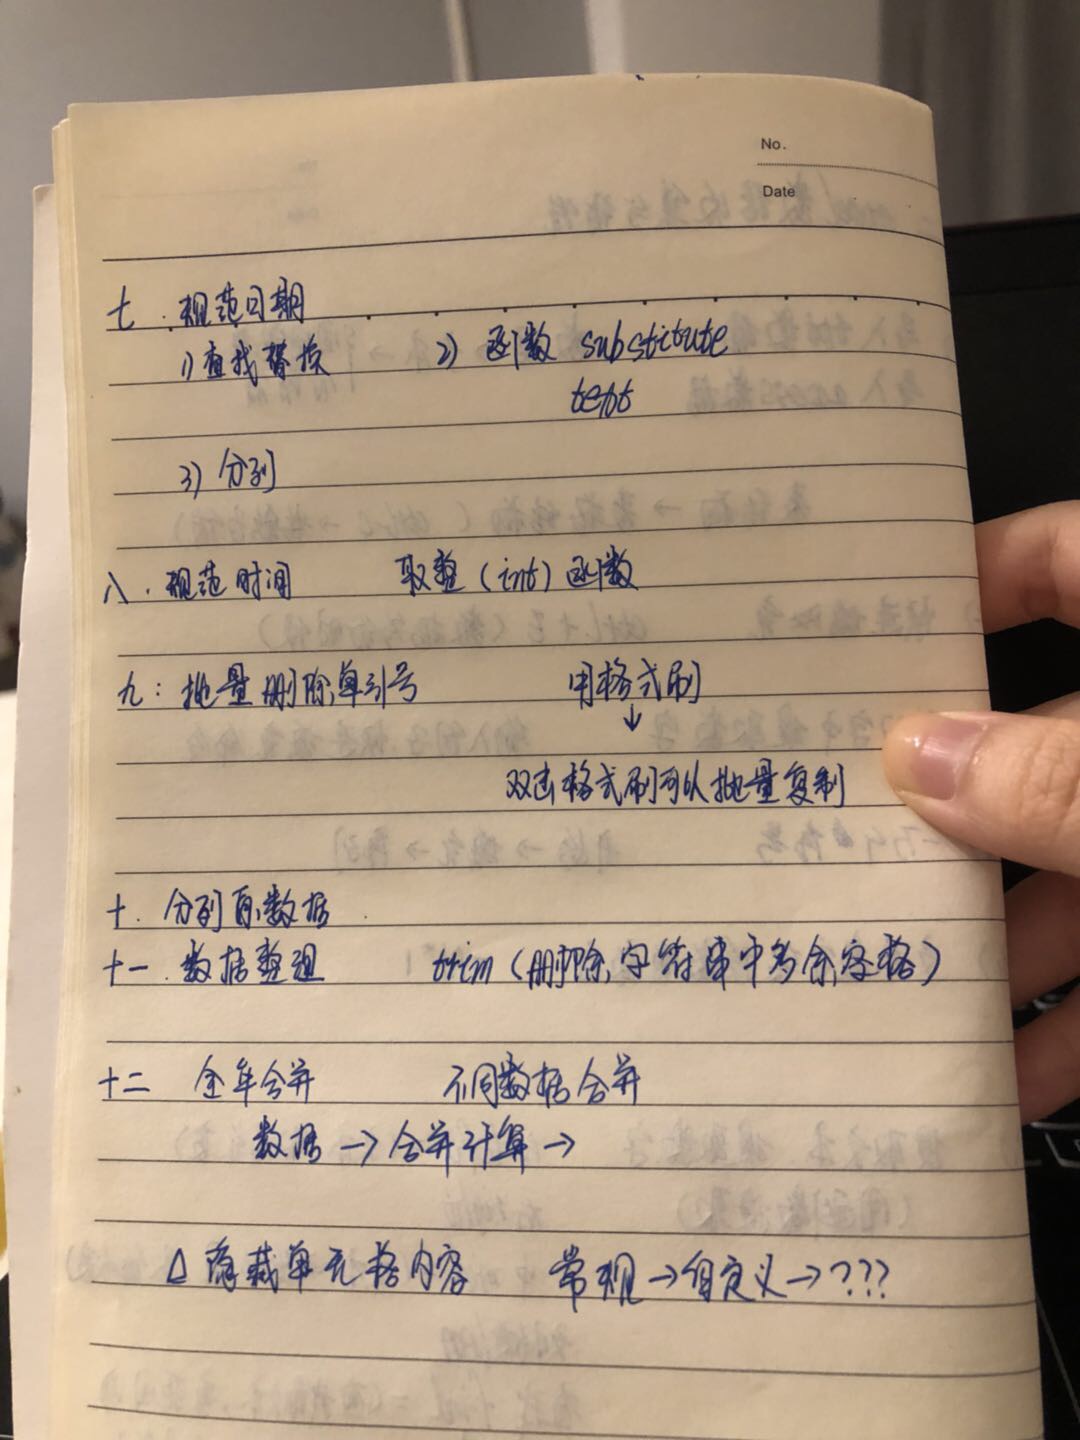 No.
Date
七. 规范日期
1) 查找替换 2) 函数 substitute
text
3) 分列
八. 规范时间 取整(int)函数
九: 批量删除单引号 用格式刷
↓
双击格式刷可以批量复制
十. 分列 数据
十一. 数据整理 trim(删除字符串中多余空格)
十二 全年合并 不同数据合并
数据→合并计算→
△ 隐藏单元格内容 常规→自定义→???